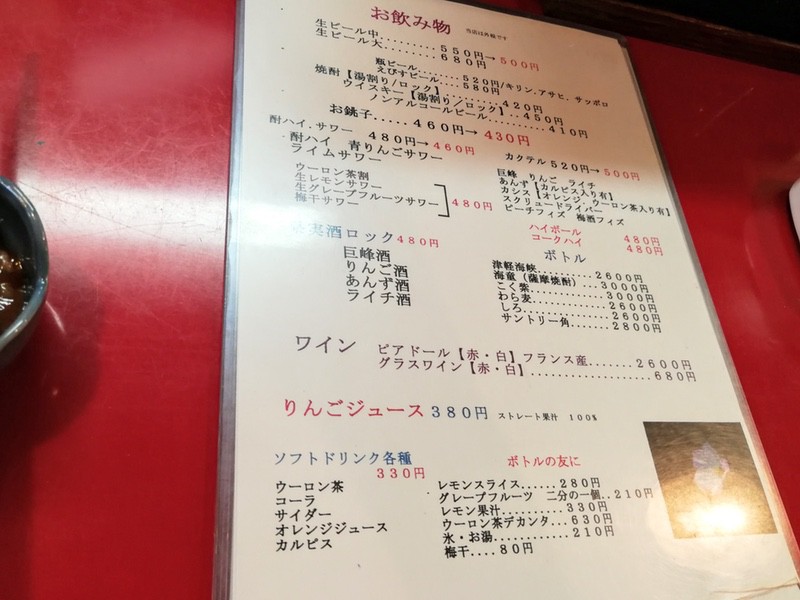 お飲み物 当店は外税です
生ビール中.........550円→500円
生ビール大.........680円
瓶ビール........520円/キリン.アサヒ.サッポロ
えびすビール....580円
焼酎【湯割り/ロック】..........420円
ウイスキー【湯割り/ロック】..450円
ノンアルコールビール..........410円
お銚子.....460円→430円
酎ハイ.サワー 480円→460円
酎ハイ 青りんごサワー
ライムサワー
ウーロン茶割
生レモンサワー
生グレープフルーツサワー 480円
梅干サワー
カクテル520円→500円
巨峰 りんご ライチ
あんず【カルピス入り有】
カシス【オレンジ、ウーロン茶入り有】
スクリュードライバー
ピーチフィズ 梅酒フィズ
ハイボール 480円
コークハイ 480円
果実酒ロック480円
巨峰酒
りんご酒
あんず酒
ライチ酒
ボトル
津軽海峡..........2600円
海童（薩摩焼酎）...3000円
こく紫............3000円
わら麦............2600円
しろ..............2600円
サントリー角......2800円
ワイン
ピアドール【赤・白】フランス産.......2600円
グラスワイン【赤・白】................680円
りんごジュース380円 ストレート果汁 100%
ソフトドリンク各種
330円
ウーロン茶
コーラ
サイダー
オレンジジュース
カルピス
ボトルの友に
レモンスライス......280円
グレープフルーツ 二分の一個..210円
レモン果汁..........330円
ウーロン茶デカンタ...630円
氷・お湯............210円
梅干....80円